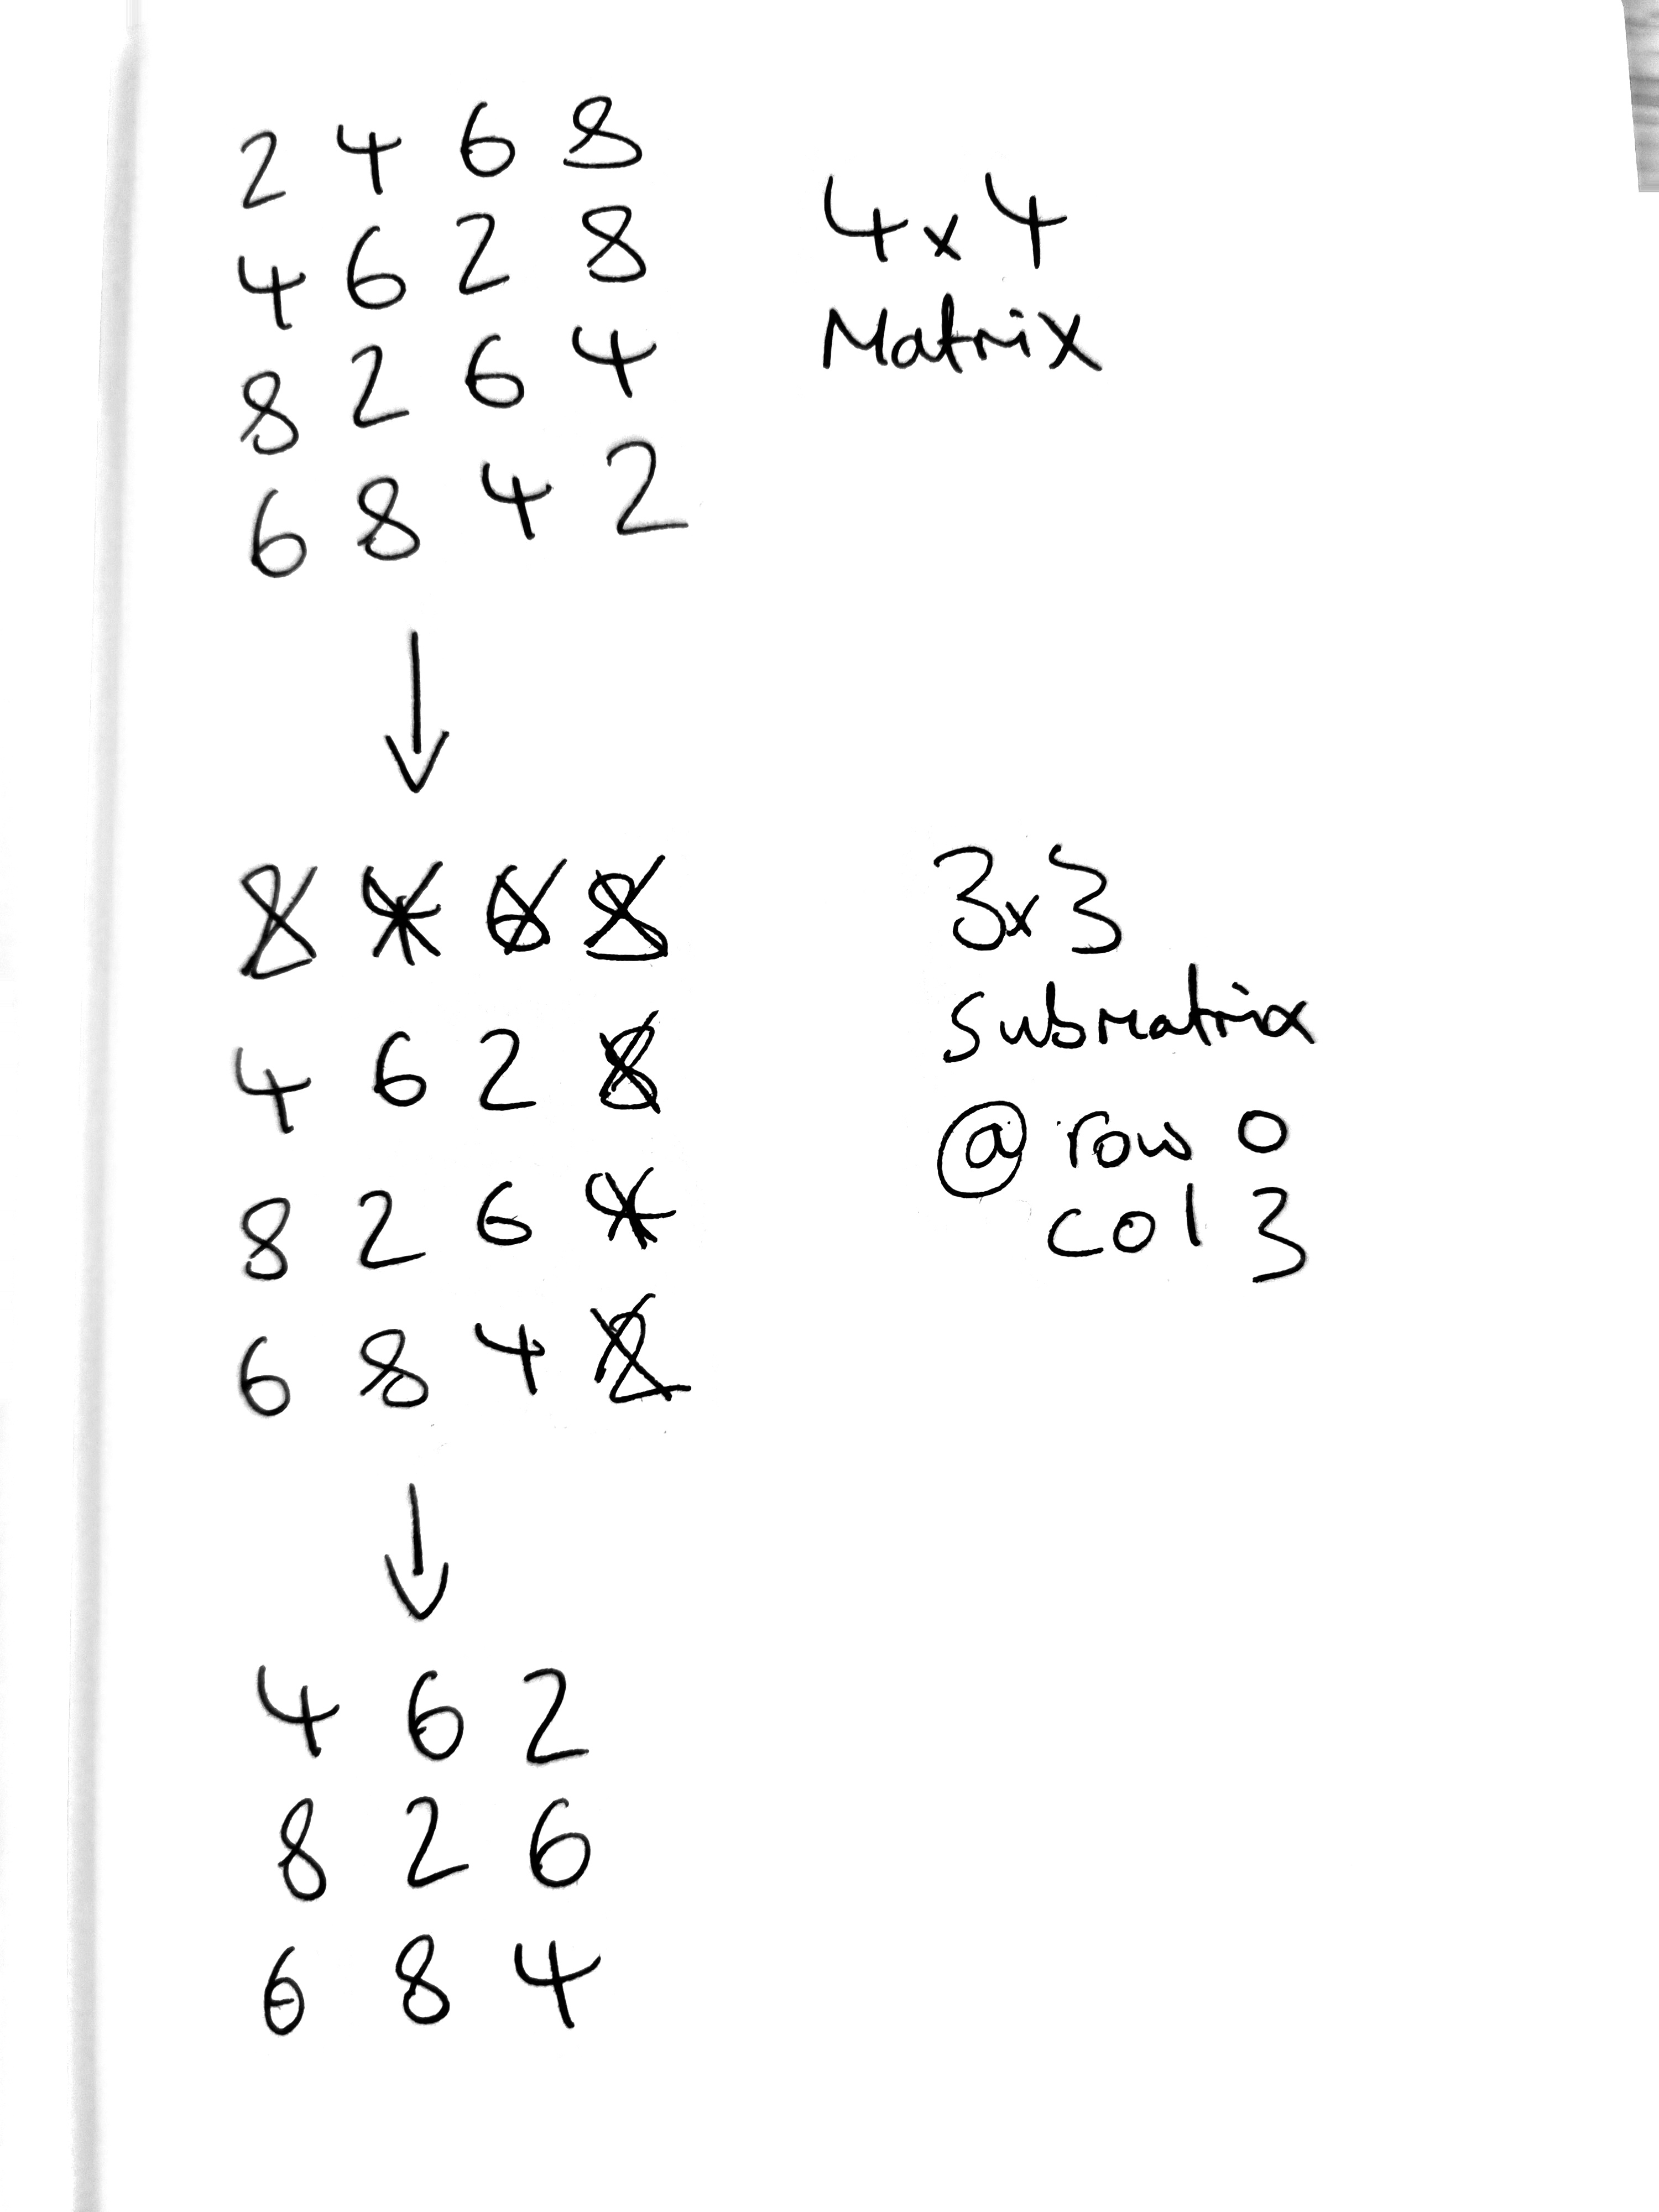 2 4 6 8
4 6 2 8
8 2 6 4
6 8 4 2
4x4
Matrix
2 4 6 8
4 6 2 8
8 2 6 4
6 8 4 2
3x3
submatrix
@ row 0
col 3
4 6 2
8 2 6
6 8 4